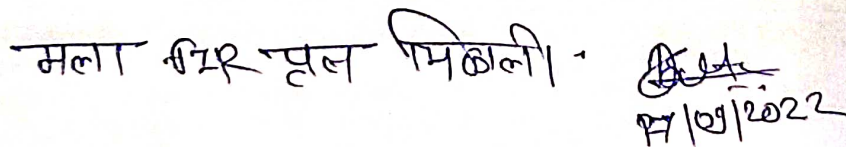 मला FIR प्रत मिळाली.
17/09/2022